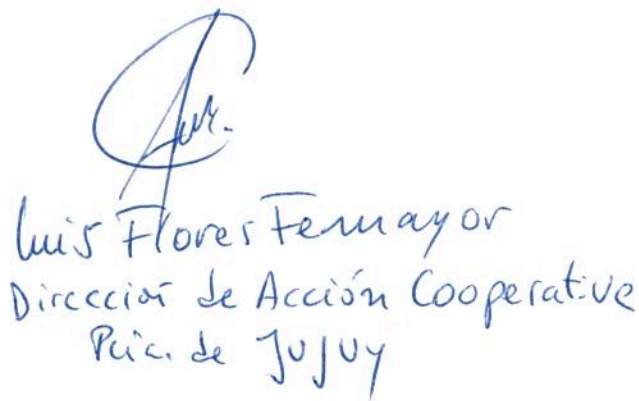 Luis Flores Femayor
Dirección de Acción Cooperative
Pcia. de Jujuy